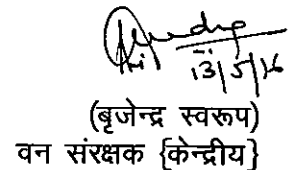 13/5/16
(बृजेन्द्र स्वरूप)
वन संरक्षक {केन्द्रीय}